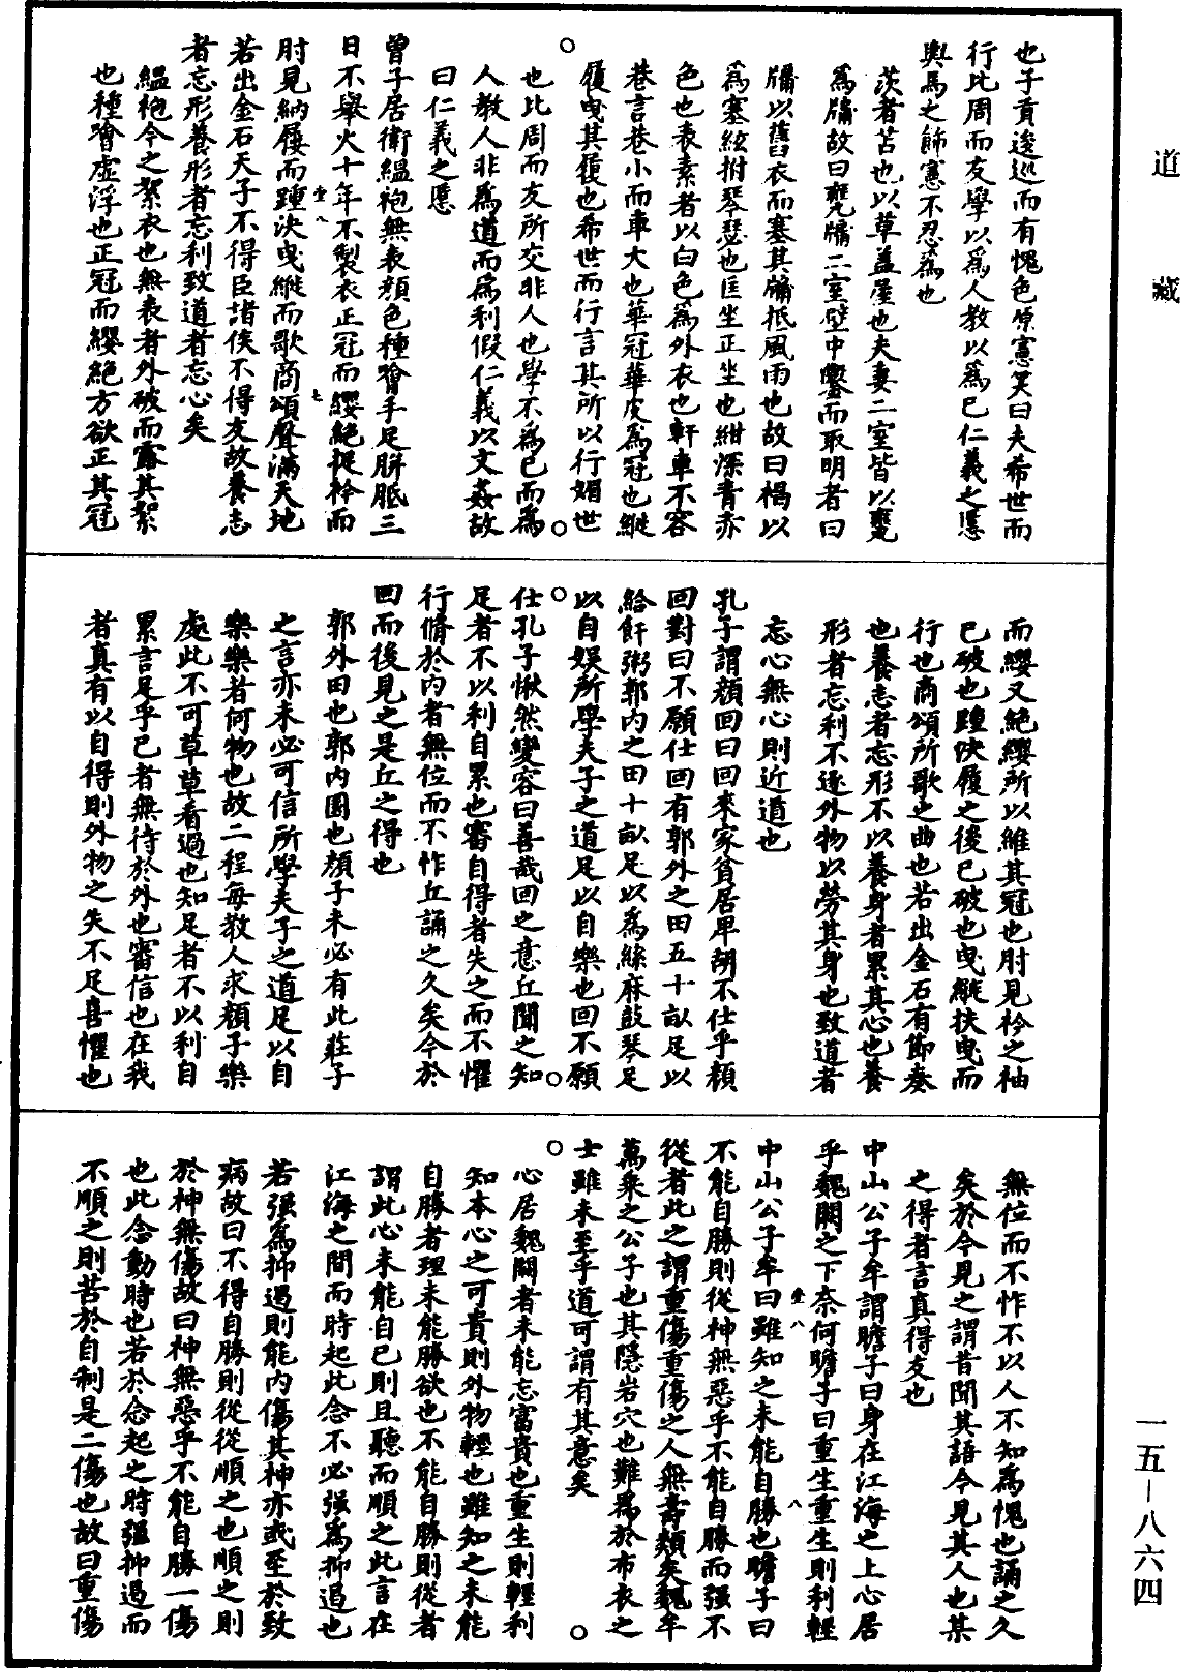 道藏
一五—八六四
也子貢逡巡而有愧色原憲笑曰夫希世而
行比周而友學以為人教以為己仁義之慝
輿馬之飾憲不忍為也
茨者苫也以草蓋屋也夫妻二室皆以甕
為牖故曰甕牖二室壁中鑿而取明者曰
牖以舊衣而塞其牖抵風雨也故曰褐以
為塞絃拊琴瑟也匡坐正坐也紺深青赤
色也表素者以白色為外衣也軒車不容
巷言巷小而車大也華冠華皮為冠也縰
履曳其履也希世而行言其所以行媚世
也比周而友所交非人也學不為己而為
人教人非為道而為利假仁義以文姦故
曰仁義之慝
曾子居衛縕袍無表顏色種噲手足胼胝三
日不舉火十年不製衣正冠而纓絕捉衿而
肘見納屨而踵決曳縰而歌商頌聲滿天地
若出金石天子不得臣諸侯不得友故養志
者忘形養形者忘利致道者忘心矣
縕袍今之絮衣也無表者外破而露其絮
也種噲虛浮也正冠而纓絕方欲正其冠
而纓又絕纓所以維其冠也肘見衿之袖
已破也踵決履之後已破也曳縰扶曳而
行也商頌所歌之曲也若出金石有節奏
也養志者忘形不以養身者累其心也養
形者忘利不逐外物以勞其身也致道者
忘心無心則近道也
孔子謂顏回曰回來家貧居卑胡不仕乎顏
回對曰不願仕回有郭外之田五十畝足以
給飦粥郭內之田十畝足以為絲麻鼓琴足
以自娛所學夫子之道足以自樂也回不願
仕孔子愀然變容曰善哉回之意丘聞之知
足者不以利自累也審自得者失之而不懼
行脩於內者無位而不怍丘誦之久矣今於
回而後見之是丘之得也
郭外田也郭內園也顏子未必有此莊子
之言亦未必可信所學夫子之道足以自
樂樂者何物也故二程每教人求顏子樂
處此不可草草看過也知足者不以利自
累言足乎己者無待於外也審信也在我
者真有以自得則外物之失不足喜懼也
無位而不怍不以人不知為愧也誦之久
矣於今見之謂昔聞其語今見其人也某
之得者言真得友也
中山公子牟謂瞻子曰身在江海之上心居
乎魏闕之下奈何瞻子曰重生重生則利輕
中山公子牟曰雖知之未能自勝也瞻子曰
不能自勝則從神無惡乎不能自勝而强不
從者此之謂重傷重傷之人無壽類矣魏牟
萬乘之公子也其隱岩穴也難為於布衣之
士雖未至乎道可謂有其意矣
心居魏闕者未能忘富貴也重生則輕利
知本心之可貴則外物輕也雖知之未能
自勝者理未能勝欲也不能自勝則從者
謂此心未能自已則且聽而順之此言在
江海之間而時起此念不必强為抑遏也
若强為抑遏則能內傷其神亦或至於致
病故曰不得自勝則從從順之也順之則
於神無傷故曰神無惡乎不能自勝一傷
也此念動時也若於念起之時强抑遏而
不順之則苦於自制是二傷也故曰重傷